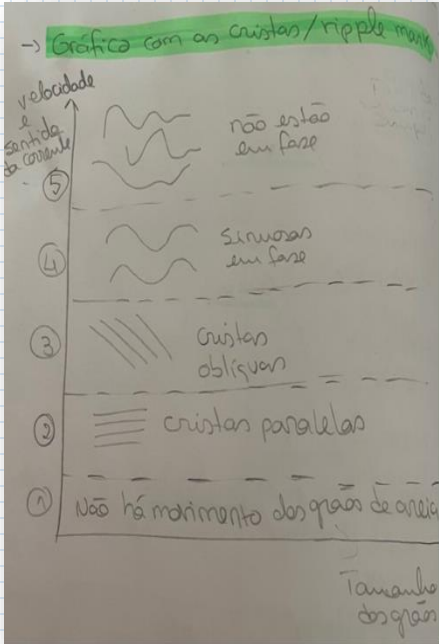 -> Gráfico com as cristas/ripple marks
velocidade
e
sentido
da corrente
não estão
em fase
⑤
sinuosas
em fase
④
③
cristas
oblíquas
②
cristas paralelas
①
Não há movimento dos grãos de areia
Tamanho
dos grãos